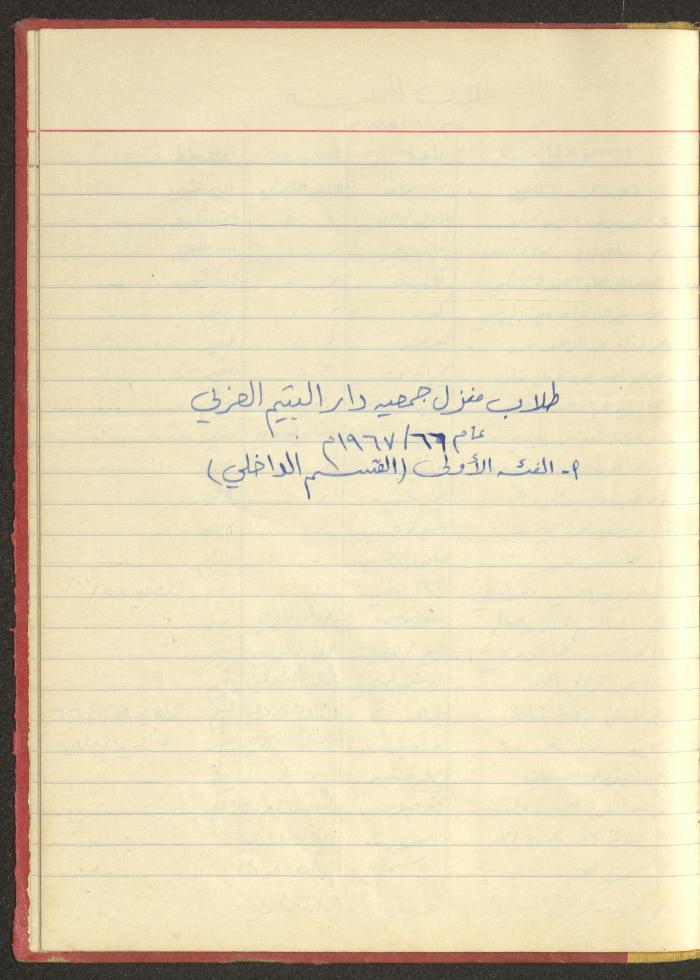 طلاب منزل جمعيه دار اليتيم العربي
عام ٦٦/١٩٦٧م
٩- الفئه الأولى (القسم الداخلي)